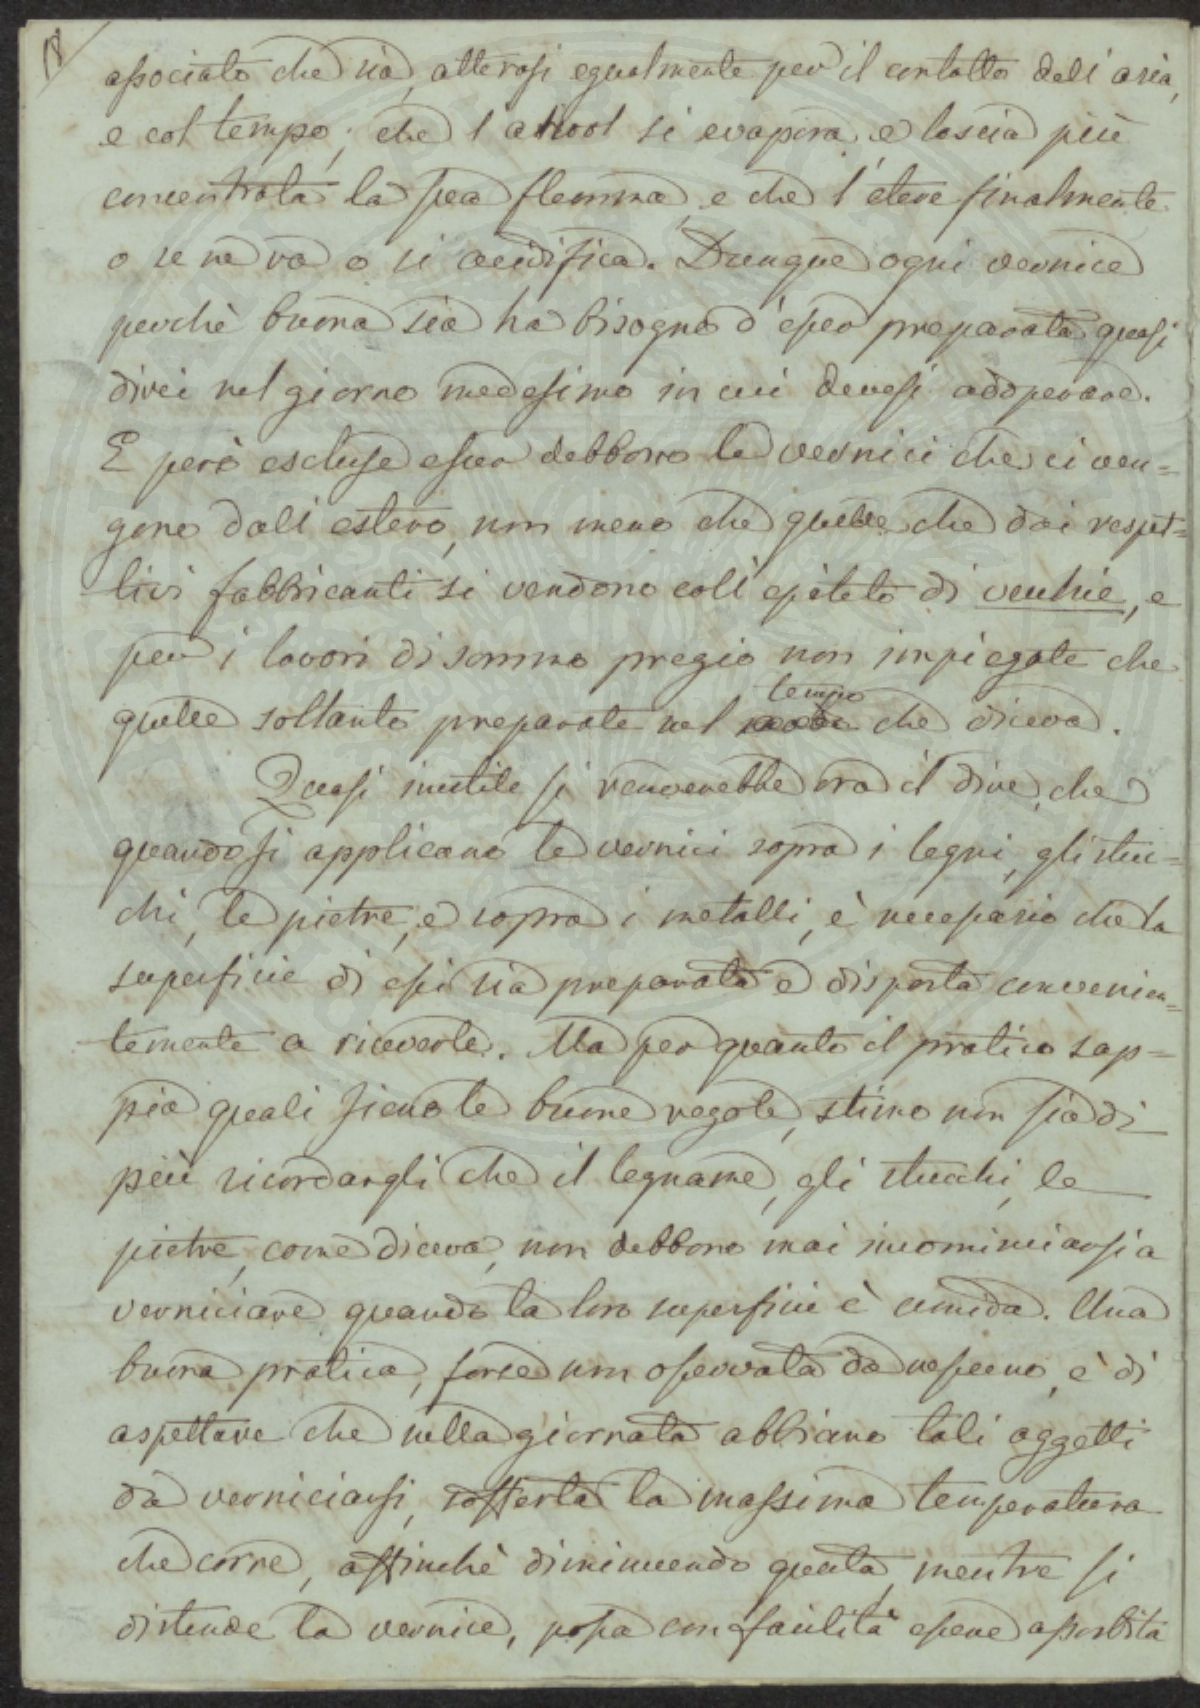 18
associato che sia, alterasi egualmente per il contatto dell'aria,
e col tempo; che l'alcool si evapora e lascia più
concentrata la sua flemma, e che l'etere finalmente
o se ne va o si acidifica. Dunque ogni vernice
perchè buona sia ha bisogno d'esser preparata quasi
direi nel giorno medesimo in cui devesi adoperare.
E però escluse esser debbono le vernici che ci ven=
gono dall'estero, non meno che quelle che dai rispet=
tivi fabbricanti si vendono coll'epiteto di vecchie, e
per i lavori di sommo pregio non impiegate che
quelle soltanto preparate nel tempo che diceva.
Quasi inutile si renderebbe ora il dire, che
quando si applicano le vernici sopra i legni, gli stuc=
chi, le pietre, e sopra i metalli, è necessario che la
superficie di essi sia preparata e disposta convenien=
temente a riceverle. Ma per quanto il pratico sap=
pia quali siano le buone regole, stimo non sia di
più ricordargli che il legname, gli stucchi, le
pietre, come diceva, non debbono mai incominciarsi a
verniciare quando la loro superficie è umida. Una
buona pratica, forse non osservata da nessuno, è di
aspettare che nella giornata abbiano tali oggetti
da verniciarsi, sofferta la massima temperatura
che corre, affinchè diminuendo questa, mentre si
distende la vernice, possa con facilità essere assorbita